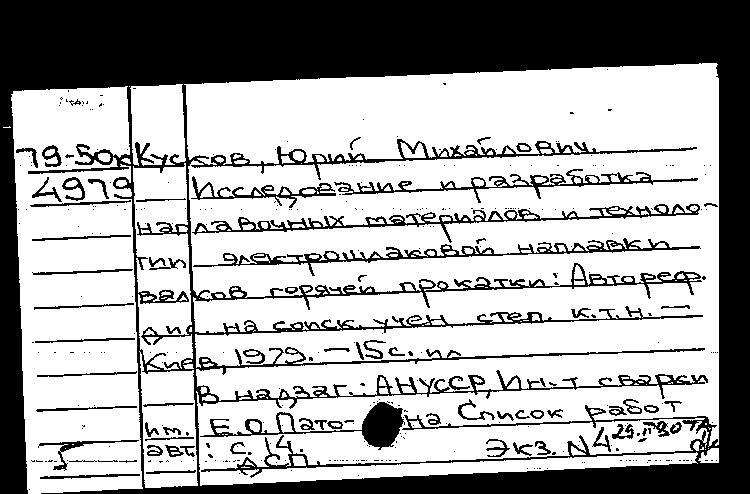 79-50к Кусков, Юрий Михайлович.
4979 Исследование и разработка
наплавочных материалов и техноло-
гии электрошлаковой наплавки
валков горячей прокатки: Автореф.
дис. на соиск. учен степ. к.т.н. —
Киев, 1979. — 15с., ил
В надзаг.: АНУССР, Ин-т сварки
им. Е.О. Пато-на. Список работ
авт.: с. 14.
ДСП. Экз. N4.